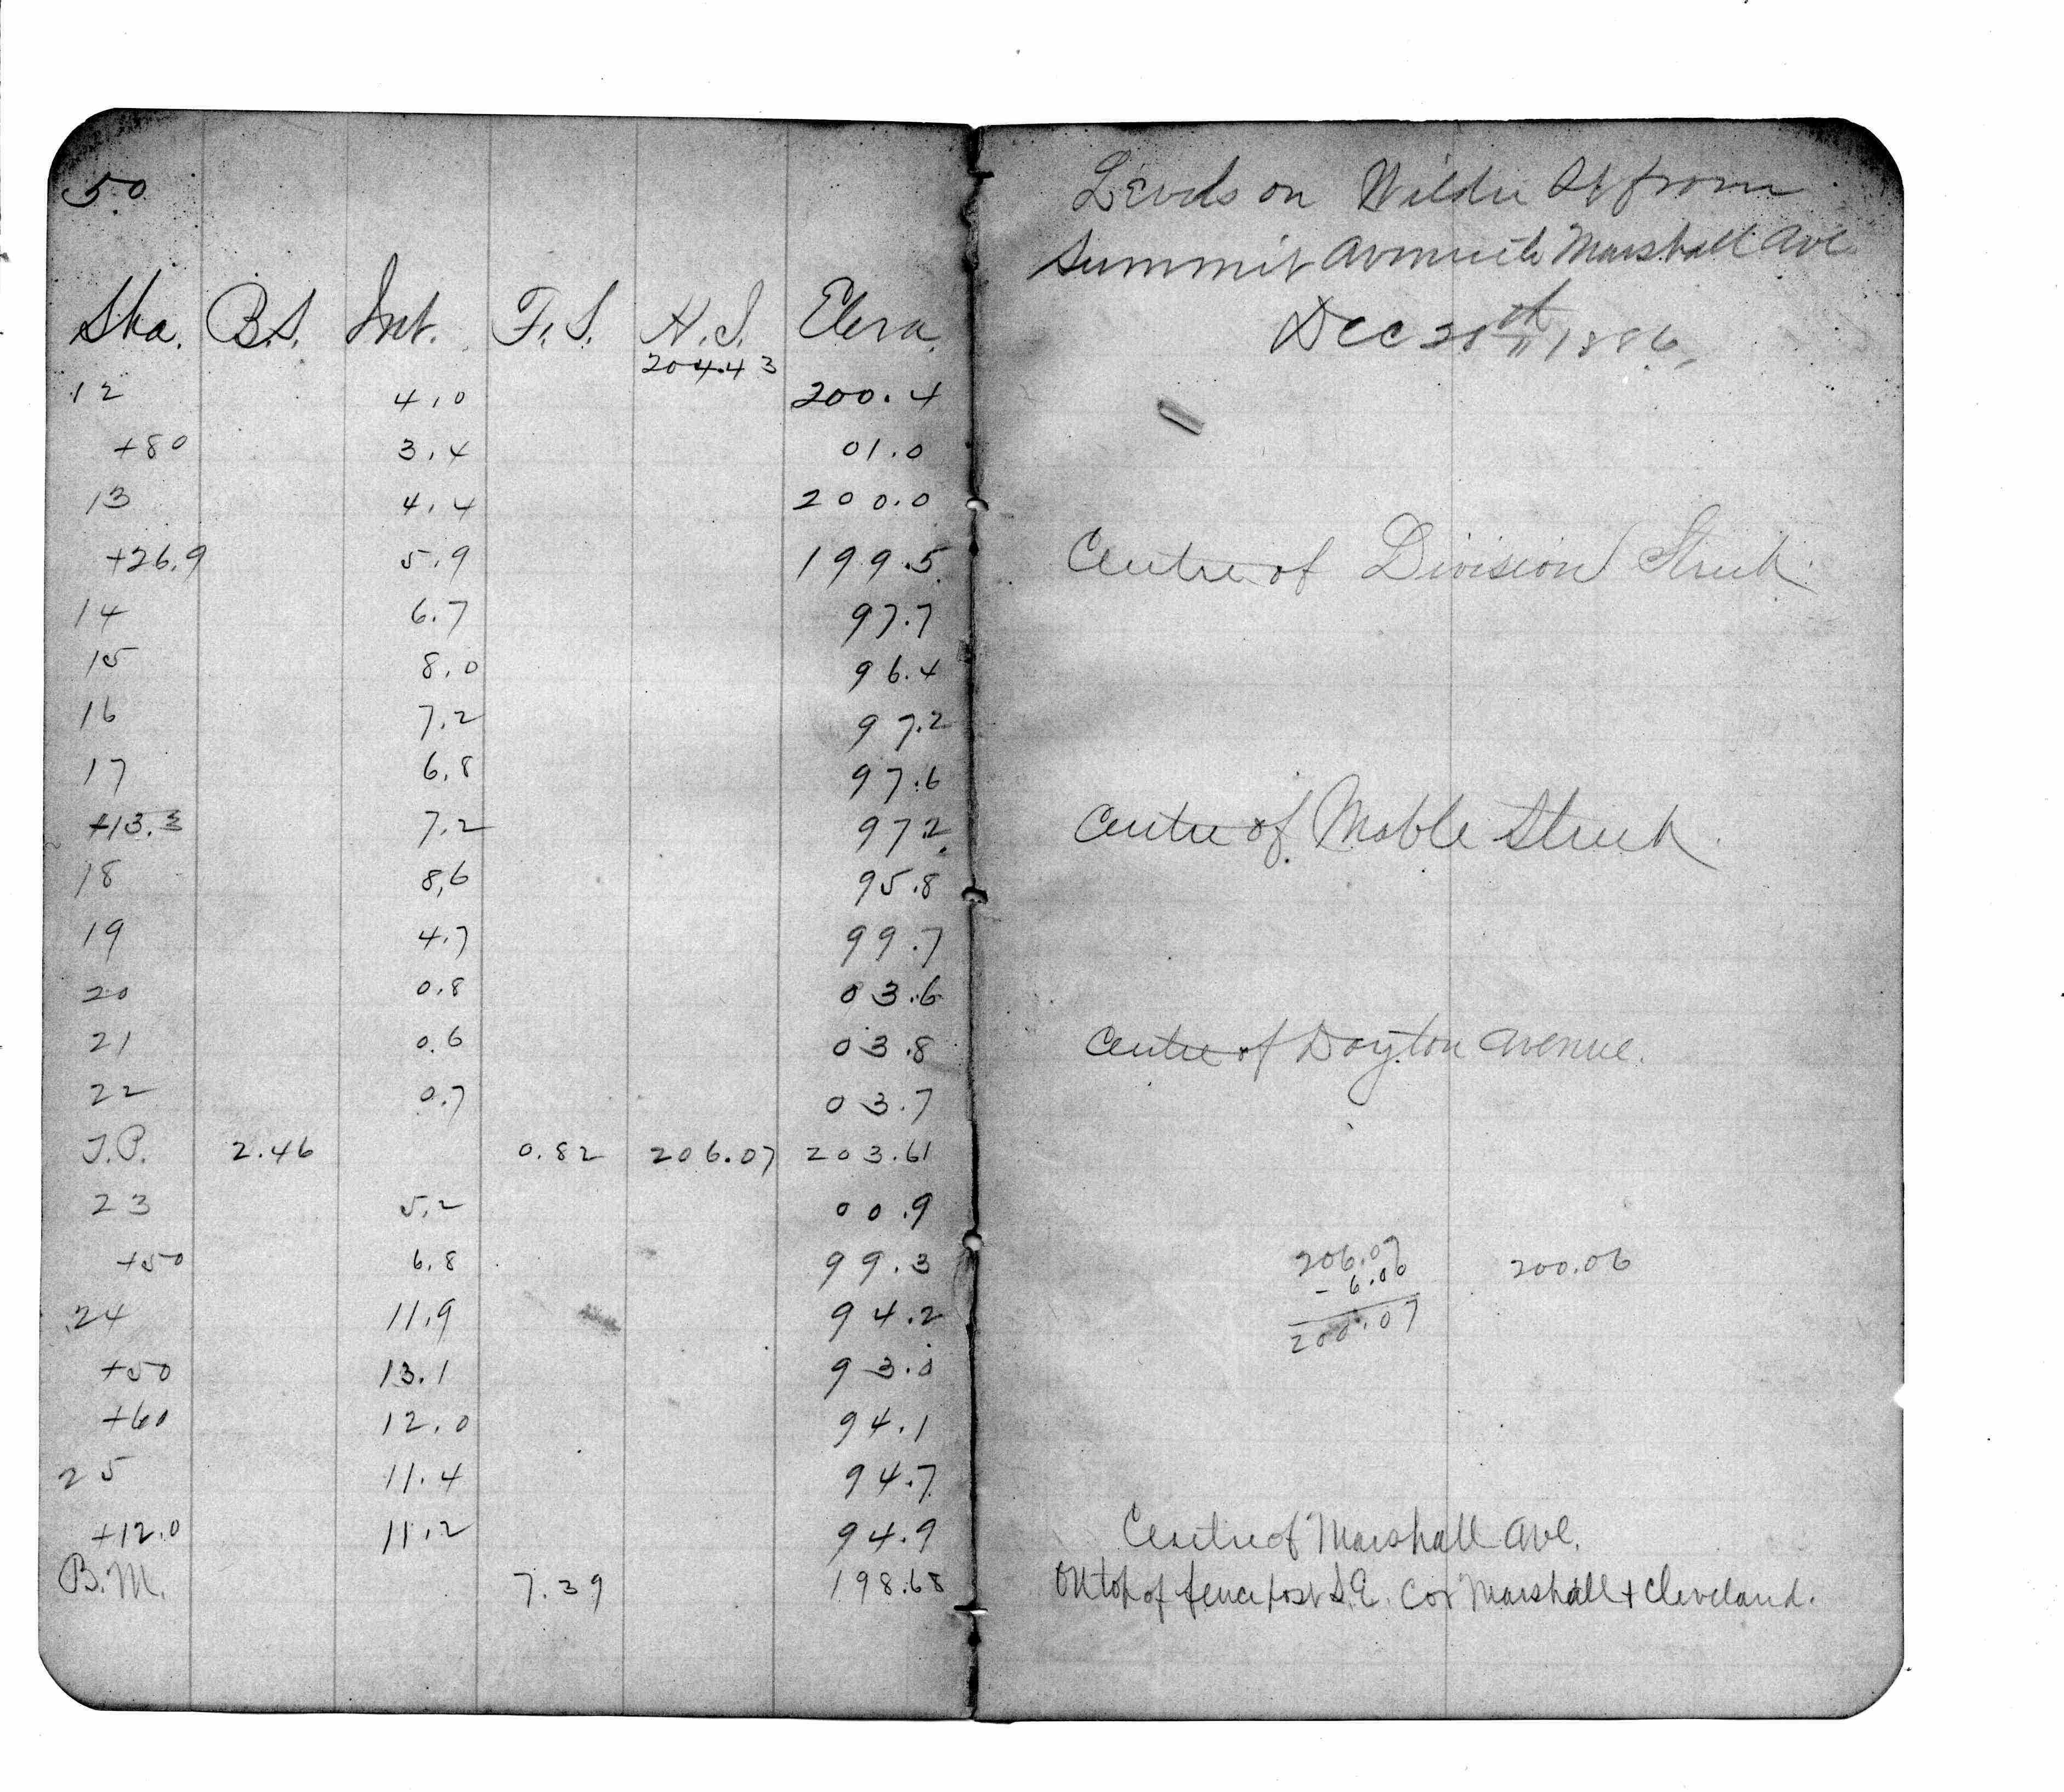 50
Sta. B.S. Int. F.S. H.I. Eleva.
204.43
12 4.0 200.4
+80 3.4 01.0
13 4.4 200.0
+26.9 5.9 199.5
14 6.7 97.7
15 8.0 96.4
16 7.2 97.2
17 6.8 97.6
+13.3 7.2 97.2
18 8.6 95.8
19 4.7 99.7
20 0.8 03.6
21 0.6 03.8
22 0.7 03.7
T.P. 2.46 0.82 206.07 203.61
23 5.2 00.9
+50 6.8 99.3
24 11.9 94.2
+50 13.1 93.0
+60 12.0 94.1
25 11.4 94.7
+12.0 11.2 94.9
B.M. 7.39 198.68
Levels on Wilder St from
Summit Avenue to Marshall Ave
Dec 28th 1886,
Centre of Division Street
Centre of Noble Street
Centre of Dayton Avenue.
206.07 200.06
- 6.00
200.07
Centre of Marshall Ave.
On top of fence post S.E. Cor Marshall + Cleveland.